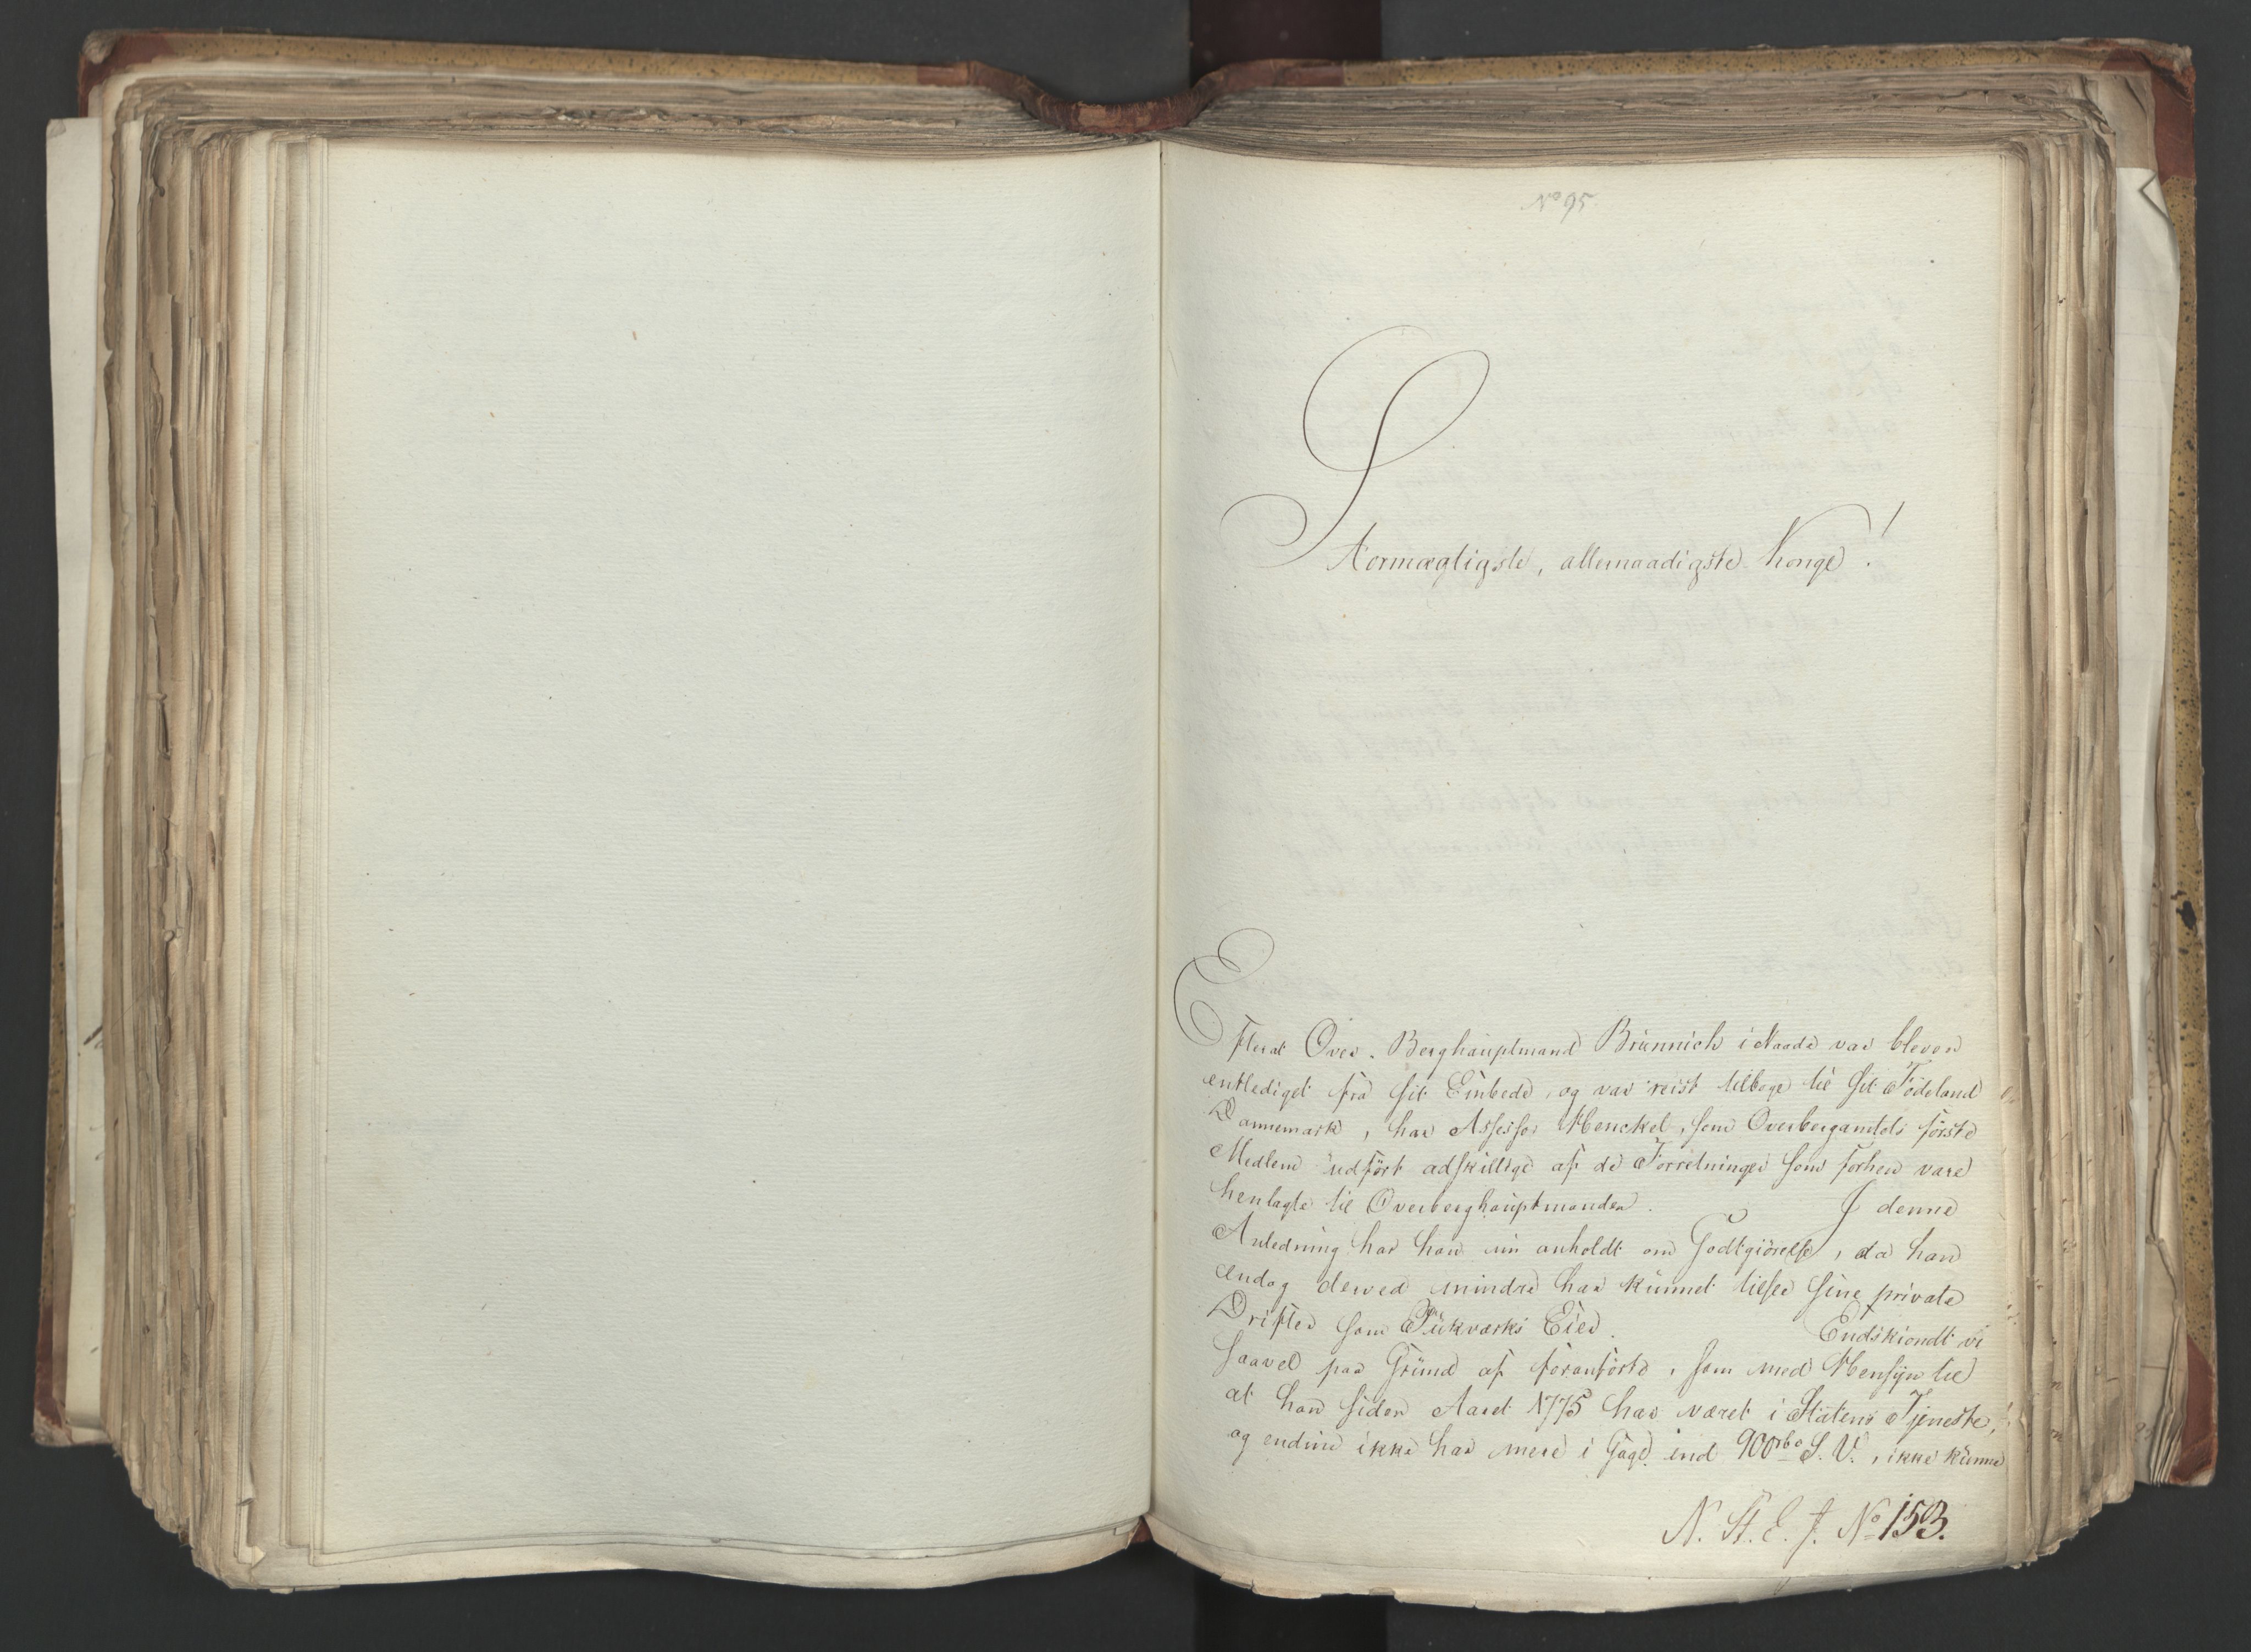 No 95
Stormægtigste, allernaadigste Konge!
Efterat Over-Berghauptmand Brünnich i Naade var bleven
entlediget fra sit Embede, og var reist tilbage til sit Födeland
Dannemark, har Assessor Henckel, som Overbergamtets förste
Medlem udfört adskillige af de Forretninger som forhen vare
henlagte til Overberghauptmanden. I denne
Anledning har han nu anholdt om Godtgiörelse, da han
endog derved mindre har kunnet tilsee sine private
Drifter som Eier. Endskiondt vi
saavel paa Grund af foranförte, som med Hensÿn til
at han siden Aaret 1775 har været i Statens Tjeneste,
og endnu ikke har mere i Gage end 900 rbd S. V., ikke kunne
N. St. E. J. No 153.